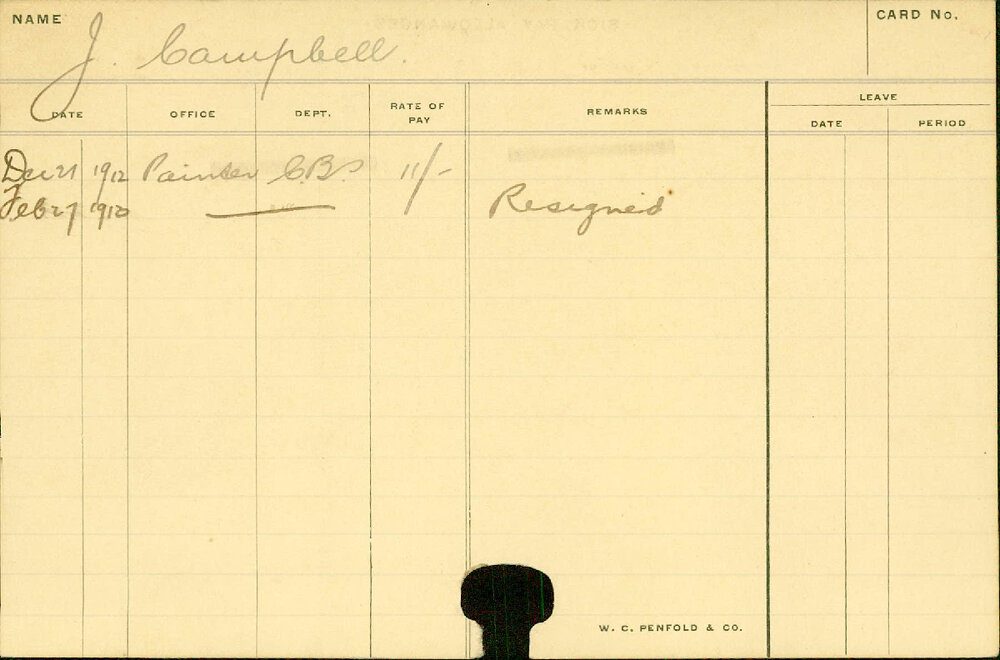 NAME
J. Campbell.
CARD No.
DATE OFFICE DEPT. RATE OF PAY REMARKS LEAVE
DATE PERIOD
Dec 21 1912 Painter C.B.S 11/-
Feb 27 1913 Resigned
W. C. PENFOLD & CO.